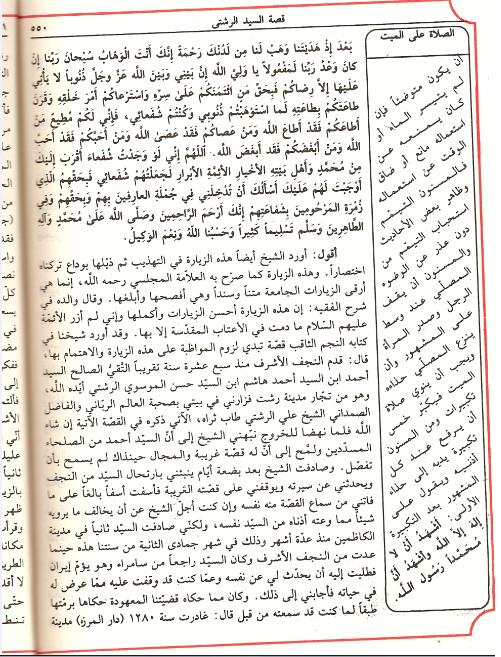 ٥٥٠
قصة السيد الرشتي
الصلاة على الميت
بَعْدَ إِذْ هَدَيْتَنَا وَهَبْ لَنا مِن لَدُنْكَ رَحْمَةً إِنَّكَ أَنْتَ الْوَهّابُ سُبْحَانَ رَبِّنا إِنْ
كانَ وَعْدُ رَبِّنا لَمَفْعُولاً يا وَلِيَّ اللَّه إِنَّ بَيْنِي وَبَيْنَ اللَّهِ عَزَّ وَجَلَّ ذُنُوباً لا يَأْتِي
عَلَيْها إِلاَّ رِضاكُمْ فَبِحَقِّ مَنِ ائْتَمَنَكُمْ عَلىٰ سِرِّهِ وَاسْتَرْعاكُمْ أَمْرَ خَلْقِهِ وَقَرَنَ
طاعَتَكُمْ بِطاعَتِهِ لَما اسْتَوْهَبْتُمْ ذُنُوبِي وَكُنْتُمْ شُفَعائِي، فَإِنِّي لَكُمْ مُطِيعٌ مَنْ
أَطاعَكُمْ فَقَدْ أَطاعَ اللَّه وَمَنْ عَصاكُمْ فَقَدْ عَصَىٰ اللَّه وَمَنْ أَحَبَّكُمْ فَقَدْ أَحَبَّ
اللَّه وَمَنْ أَبْغَضَكُمْ فَقَدْ أَبْغَضَ اللَّه. اَللّٰهُمَّ إِنِّي لَوْ وَجَدْتُ شُفَعاءَ أَقْرَبَ إِلَيْكَ
مِنْ مُحَمَّدٍ وَأَهْلِ بَيْتِهِ الأَخْيارِ الأَئِمَّةِ الأَبْرارِ لَجَعَلْتُهُمْ شُفَعائِي فَبِحَقِّهِمُ الَّذِي
أَوْجَبْتَ لَهُمْ عَلَيْكَ أَسْأَلُكَ أَنْ تُدْخِلَنِي فِي جُمْلَةِ العارِفِينَ بِهِمْ وَبِحَقِّهِمْ وَفِي
زُمْرَةِ المَرْحُومِينَ بِشَفاعَتِهِمْ إِنَّكَ أَرْحَمُ الرَّاحِمِينَ وَصَلَّى اللَّه عَلىٰ مُحَمَّدٍ وَآلِهِ
الطَّاهِرِينَ وَسَلَّمَ تَسْلِيماً كَثِيراً وَحَسْبُنا اللَّهُ وَنِعْمَ الوَكِيلُ.
أقول: أورد الشيخ أيضاً هذه الزيارة في التهذيب ثم ذيّلها بوداع تركناه
اختصاراً. وهذه الزيارة كما صرّح به العلامة المجلسي رحمه اللَّه، إنما هي
أرقى الزيارات الجامعة متناً وسنداً وهي أفصحها وأبلغها. وقال والده في
شرح الفقيه: إن هذه الزيارة أحسن الزيارات وأكملها وإني لم أزر الأئمّة
عليهم السلام ما دمت في الأعتاب المقدّسة إلا بها. وقد أورد شيخنا في
كتابه النجم الثاقب قصّة تبدي لزوم المواظبة على هذه الزيارة والاهتمام بها،
قال: قدم النجف الأشرف منذ سبع عشرة سنة تقريباً التّقيُّ الصالح السيد
أحمد ابن السيد هاشم ابن السيّد حسن الموسوي الرشتي أيّده اللَّه،
وهو من تجار مدينة رشت فزارني في بيتي بصحبة العالم الربّاني والفاضل
الصمداني الشيخ علي الرشتي طاب ثراه، الآتي ذكره في القصّة الآتية إن شاء
اللَّه فلما نهضا للخروج نبّهني الشيخ إلى أنّ السيد أحمد من الصلحاء
المسدّدين ولمّح إلى أنّ له قصّة غريبة والمجال حينذاك لم يسمح بأن
تفصّل. وصادفت الشيخ بعد بضعة أيّام ينبئني بارتحال السيّد من النجف
ويحدثني عن سيرته ويوقفني على قصّته الغريبة فأسفت أسفاً بالغاً على ما
فاتني من سماع القصّة منه نفسه وإن كنت أجلّ الشيخ عن أن يخالف ما يرويه
شيئاً مما وعته أذناه من السيّد نفسه، ولكنّي صادفت السيّد ثانياً في مدينة
الكاظمين منذ عدّة أشهر وذلك في شهر جمادى الثانية من سنتنا هذه حينما
عدت من النجف الأشرف وكان السيّد راجعاً من سامراء وهو يؤمّ إيران
فطلبت إليه أن يحدّث لي عن نفسه وعمّا كنت قد وقفت عليه ممّا عرض له
في حياته فأجابني إلى ذلك. وكان مما حكاه قضيّتنا المعهودة حكاها برمّتها
طبقاً لما كنت قد سمعته من قبل قال: غادرت سنة ١٢٨٠ (دار المرز) مدينة
أن يكون متوضئاً فإن
لم يتيسر الماء أو
كان يمنعه عن
استعماله مانع أو ضاق
الوقت عن استعماله
فالمسنون التيمّم
وظاهر بعض الأحاديث
استحباب التيمم من
دون عذر عن الوضوء
والمسنون أن يقف
المصلّي عند وسط
الرجل وصدر المرأة
على المشهور وأن
ينزع المصلي حذاءه
ويجب أن ينوي صلاة
الميت فيكبّر خمس
تكبيرات ومن المسنون
أن يرفع عند كل
تكبيرة يديه إلى حذاء
أذنيه ويقول على
المشهور بعد التكبيرة
الأولى: أَشْهَدُ أَنْ لا
إِلٰهَ إِلاَّ اللَّه وَأَشْهَدُ أَنَّ
مُحَمَّداً رَسُولُ اللَّه.